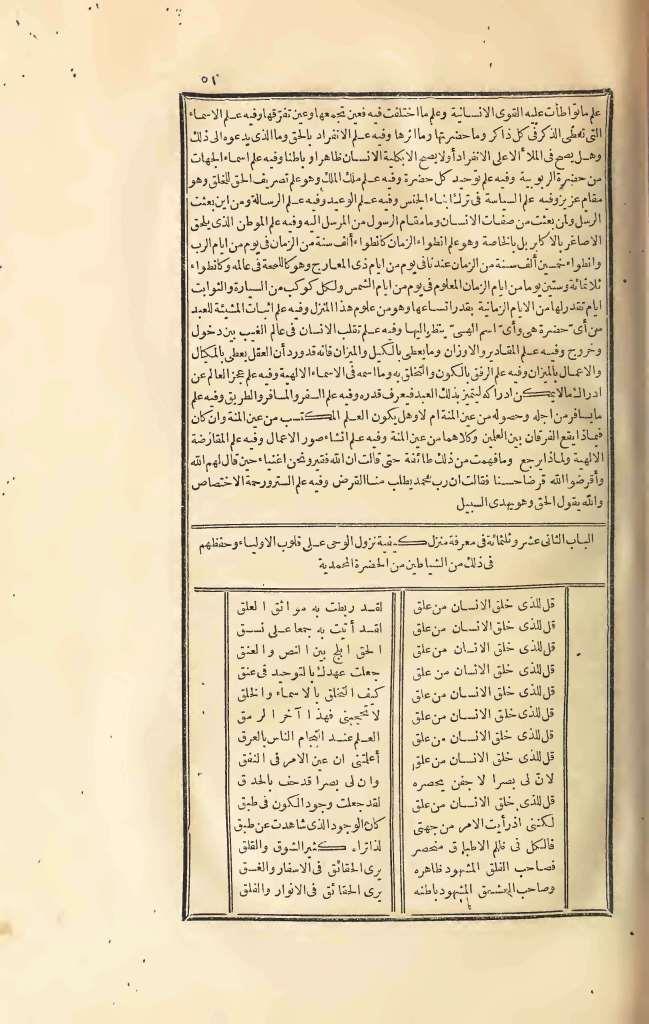 ٥١
علم ما تواطأت عليه القوى الانسانية وعلم ما اختلفت فيه فعين تجمعها وعين تفرقها وفيه علم الاسماء
التى تعطى الذكر فى كل ذاكر وما حضرتها وما اثرها وفيه علم الانفراد بالحق وما الذى يدعوه الى ذلك
وهل يصح فى الملأ الاعلى الانفراد أولا يصح الا بكلية الانسان ظاهرا وباطنا وفيه علم اسماء الجهات
من حضرة الربوبية وفيه علم توحيد كل حضرة وفيه علم ملك الملك وهو علم تصريف الحق للخلق وهو
مقام عزيز وفيه علم السياسة فى ترك ابناء الجنس وفيه علم الوعيد وفيه علم الرسالة ومن اين بعثت
الرسل ولمن بعثت من صفات الانسان وما مقام الرسول من المرسل اليه وفيه علم الموطن الذى يلحق
الاصاغر بالاكابر بل بالخاصة وهو علم انطواء الزمان كانطواء ألف سنة من الزمان فى يوم من ايام الرب
وانطواء خمسين ألف سنة من الزمان عندنا فى يوم من ايام ذى المعارج وهو كاللمعة فى عالمه وكانطواء
ثلاثمائة وستين يوما من ايام الزمان المعلوم فى يوم من ايام الشمس ولكل كوكب من السيارة والثوابت
ايام تقدر لها من الايام الزمانية بقدر اتساعها وهو من علوم هذا المنزل وفيه علم اثبات المشيئة للعبد
من أىّ حضرة هى وأىّ اسم الهىّ ينظر اليها وفيه علم تقلب الانسان فى عالم الغيب بين دخول
وخروج وفيه علم المقادير والاوزان وما يعطى بالكيل والميزان فانه قد ورد أن العقل يعطى بالمكيال
والاعمال بالميزان وفيه علم الرفق بالكون والتخلق به وما اسمه فى الاسماء الالهية وفيه علم عجز العالم عن
ادراك ما لا يمكن ادراكه ليتميز بذلك العبد فيعرف قدره وفيه علم السفر والمسافر والطريق وفيه علم
ما يسافر من اجله وحصوله من عين المنة ام لا وهل يكون العلم المكتسب من عين المنة وان كان
فبماذا يقع الفرقان بين العلمين وكلاهما من عين المنة وفيه علم انشاء صور الاعمال وفيه علم المقارضة
الالهية ولماذا يرجع وما فهمت من ذلك طائفة حتى قالت ان الله فقير ونحن اغنياء حين قال لهم الله
وأقرضوا الله قرضا حسنا فقالت ان رب محمد يطلب منا القرض وفيه علم الستر ورحمة الاختصاص
والله يقول الحق وهو يهدى السبيل
الباب الثانى عشر وثلثمائة فى معرفة منزل كيفية نزول الوحى على قلوب الاولياء وحفظهم
فى ذلك من الشياطين من الحضرة المحمدية
قل للذى خلق الانسان من علق لقد ربطت به مواثق العلق
قل للذى خلق الانسان من علق لقد أتيت به جمعا على نسق
قل للذى خلق الانسان من علق الحق ابلج بين النص والعنق
قل للذى خلق الانسان من علق جعلت عهدك بالتوحيد فى عنق
قل للذى خلق الانسان من علق كيف التخلق بالاسماء والخلق
قل للذى خلق الانسان من علق لا تحجبنى فهذا آخر الرمق
قل للذى خلق الانسان من علق العلم عند الجام الناس بالعرق
قل للذى خلق الانسان من علق أعلمتنى ان عين الامر فى النفق
لانّ لى بصرا لا جفن يحصره وان لى بصرا قد حف بالحدق
قل للذى خلق الانسان من علق لقد جعلت وجود الكون فى طبق
لكننى اذ رأيت الامر من جهتى كان الوجود الذى شاهدت عن طبق
فالكل فى ظلم الاطباق منحصر لذا تراه كثير الشوق والقلق
فصاحب الفلق المشهود ظاهره يرى الحقائق فى الاسفار والغسق
وصاحب المشهود باطنه يرى الحقائق فى الانوار والفلق